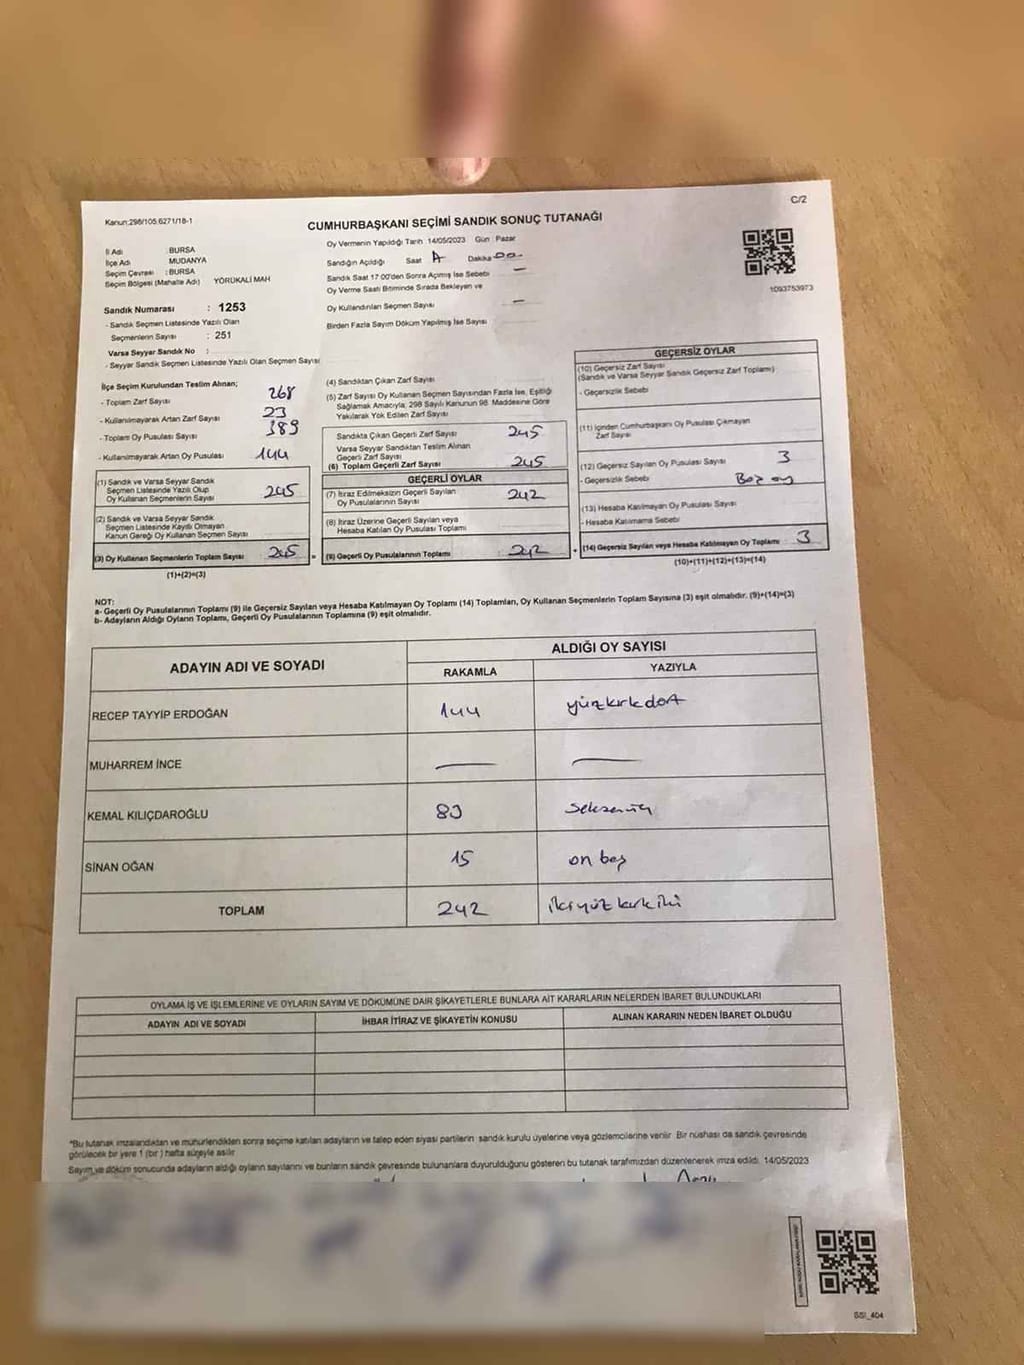 C/2
Kanun:298/105.6271/18-1
CUMHURBAŞKANI SEÇİMİ SANDIK SONUÇ TUTANAĞI
İl Adı : BURSA
İlçe Adı MUDANYA
Seçim Çevresi : BURSA
Seçim Bölgesi (Mahalle Adı) YÖRÜKALİ MAH
Sandık Numarası : 1253
- Sandık Seçmen Listesinde Yazılı Olan
Seçmenlerin Sayısı : 251
Varsa Seyyar Sandık No :
- Seyyar Sandık Seçmen Listesinde Yazılı Olan Seçmen Sayısı
Oy Vermenin Yapıldığı Tarih 14/05/2023 Gün : Pazar
Sandığın Açıldığı Saat Dakika 00
Sandık Saat 17:00'den Sonra Açımış İse Sebebi —
Oy Verme Saati Bitiminde Sırada Bekleyen ve
Oy Kullandırılan Seçmen Sayısı —
Birden Fazla Sayım Döküm Yapılmış İse Sayısı
1093753973
İlçe Seçim Kurulundan Teslim Alınan;
- Toplam Zarf Sayısı 268
- Kullanılmayarak Artan Zarf Sayısı 23
- Toplam Oy Pusulası Sayısı 389
- Kullanılmayarak Artan Oy Pusulası 144
(1) Sandık ve Varsa Seyyar Sandık
Seçmen Listesinde Yazılı Olup
Oy Kullanan Seçmenlerin Sayısı 245
(2) Sandık ve Varsa Seyyar Sandık
Seçmen Listesinde Kayıtlı Olmayan
Kanun Gereği Oy Kullanan Seçmen Sayısı
(3) Oy Kullanan Seçmenlerin Toplam Sayısı 245 =
(1)+(2)=(3)
(4) Sandıktan Çıkan Zarf Sayısı
(5) Zarf Sayısı Oy Kullanan Seçmen Sayısından Fazla İse, Eşitliği
Sağlamak Amacıyla; 298 Sayılı Kanunun 98. Maddesine Göre
Yakılarak Yok Edilen Zarf Sayısı
Sandıkta Çıkan Geçerli Zarf Sayısı 245
Varsa Seyyar Sandıktan Teslim Alınan
Geçerli Zarf Sayısı
(6) Toplam Geçerli Zarf Sayısı 245
GEÇERLİ OYLAR
(7) İtiraz Edilmeksizin Geçerli Sayılan
Oy Pusulasının Sayısı 242
(8) İtiraz Üzerine Geçerli Sayılan veya
Hesaba Katılan Oy Pusulası Toplamı
(9) Geçerli Oy Pusulalarının Toplamı : 242 +
GEÇERSİZ OYLAR
(10) Geçersiz Zarf Sayısı
(Sandık ve Varsa Seyyar Sandık Geçersiz Zarf Toplamı)
- Geçersizlik Sebebi
(11) İçinden Cumhurbaşkanı Oy Pusulası Çıkmayan
Zarf Sayısı
(12) Geçersiz Sayılan Oy Pusulası Sayısı 3
- Geçersizlik Sebebi Boz oy
(13) Hesaba Katılmayan Oy Pusulası Sayısı
- Hesaba Katılmama Sebebi
(14) Geçersiz Sayılan veya Hesaba Katılmayan Oy Toplamı : 3
(10)+(11)+(12)+(13)=(14)
NOT:
a- Geçerli Oy Pusulalarının Toplamı (9) ile Geçersiz Sayılan veya Hesaba Katılmayan Oy Toplamı (14) Toplamları, Oy Kullanan Seçmenlerin Toplam Sayısına (3) eşit olmalıdır. (9)+(14)=(3)
b- Adayların Aldığı Oyların Toplamı, Geçerli Oy Pusulalarının Toplamına (9) eşit olmalıdır.
ADAYIN ADI VE SOYADI ALDIĞI OY SAYISI
RAKAMLA YAZIYLA
RECEP TAYYİP ERDOĞAN 144 yüzkırkdört
MUHARREM İNCE — —
KEMAL KILIÇDAROĞLU 83 seksenüç
SİNAN OĞAN 15 on beş
TOPLAM 242 ikiyüzkırkiki
OYLAMA İŞ VE İŞLEMLERİNE VE OYLARIN SAYIM VE DÖKÜMÜNE DAİR ŞİKAYETLERLE BUNLARA AİT KARARLARIN NELERDEN İBARET BULUNDUKLARI
ADAYIN ADI VE SOYADI İHBAR İTİRAZ VE ŞİKAYETİN KONUSU ALINAN KARARIN NEDEN İBARET OLDUĞU
*Bu tutanak imzalandıktan ve mühürlendikten sonra seçime katılan adayların ve talep eden siyasi partilerin sandık kurulu üyelerine veya gözlemcilerine verilir. Bir nüshası da sandık çevresinde
görülecek bir yere 1 (bir) hafta süreyle asılır
Sayım ve döküm sonucunda adayların aldığı oyların sayılarını ve bunların sandık çevresinde bulunanlara duyurulduğunu gösteren bu tutanak tarafımızdan düzenlenerek imza edildi. 14/05/2023